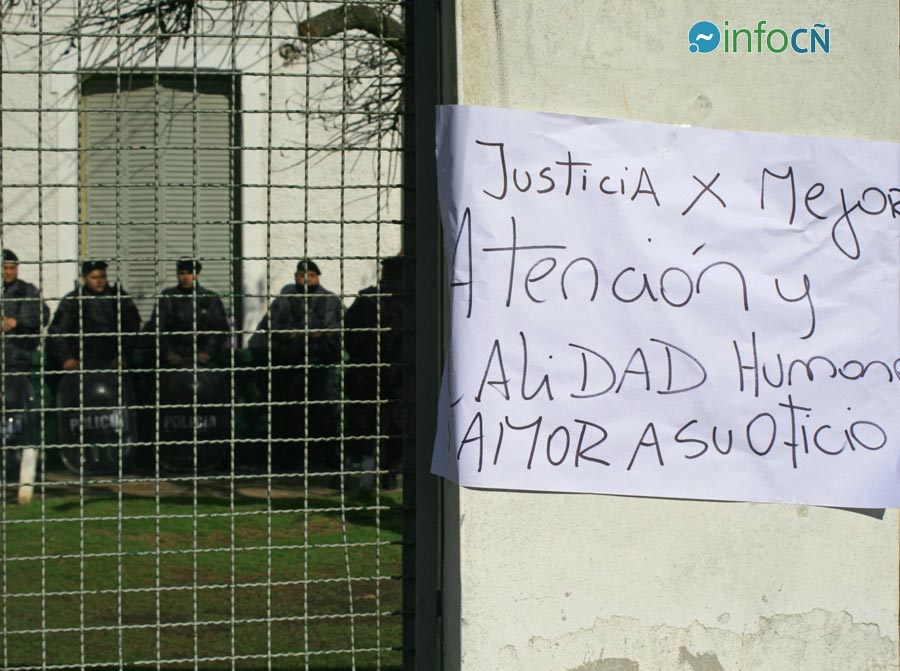 infoCÑ
JusticiA x Mejor
Atención y
CAliDAD Humana
AMOR A su Oficio
POLICIA
POLICIA